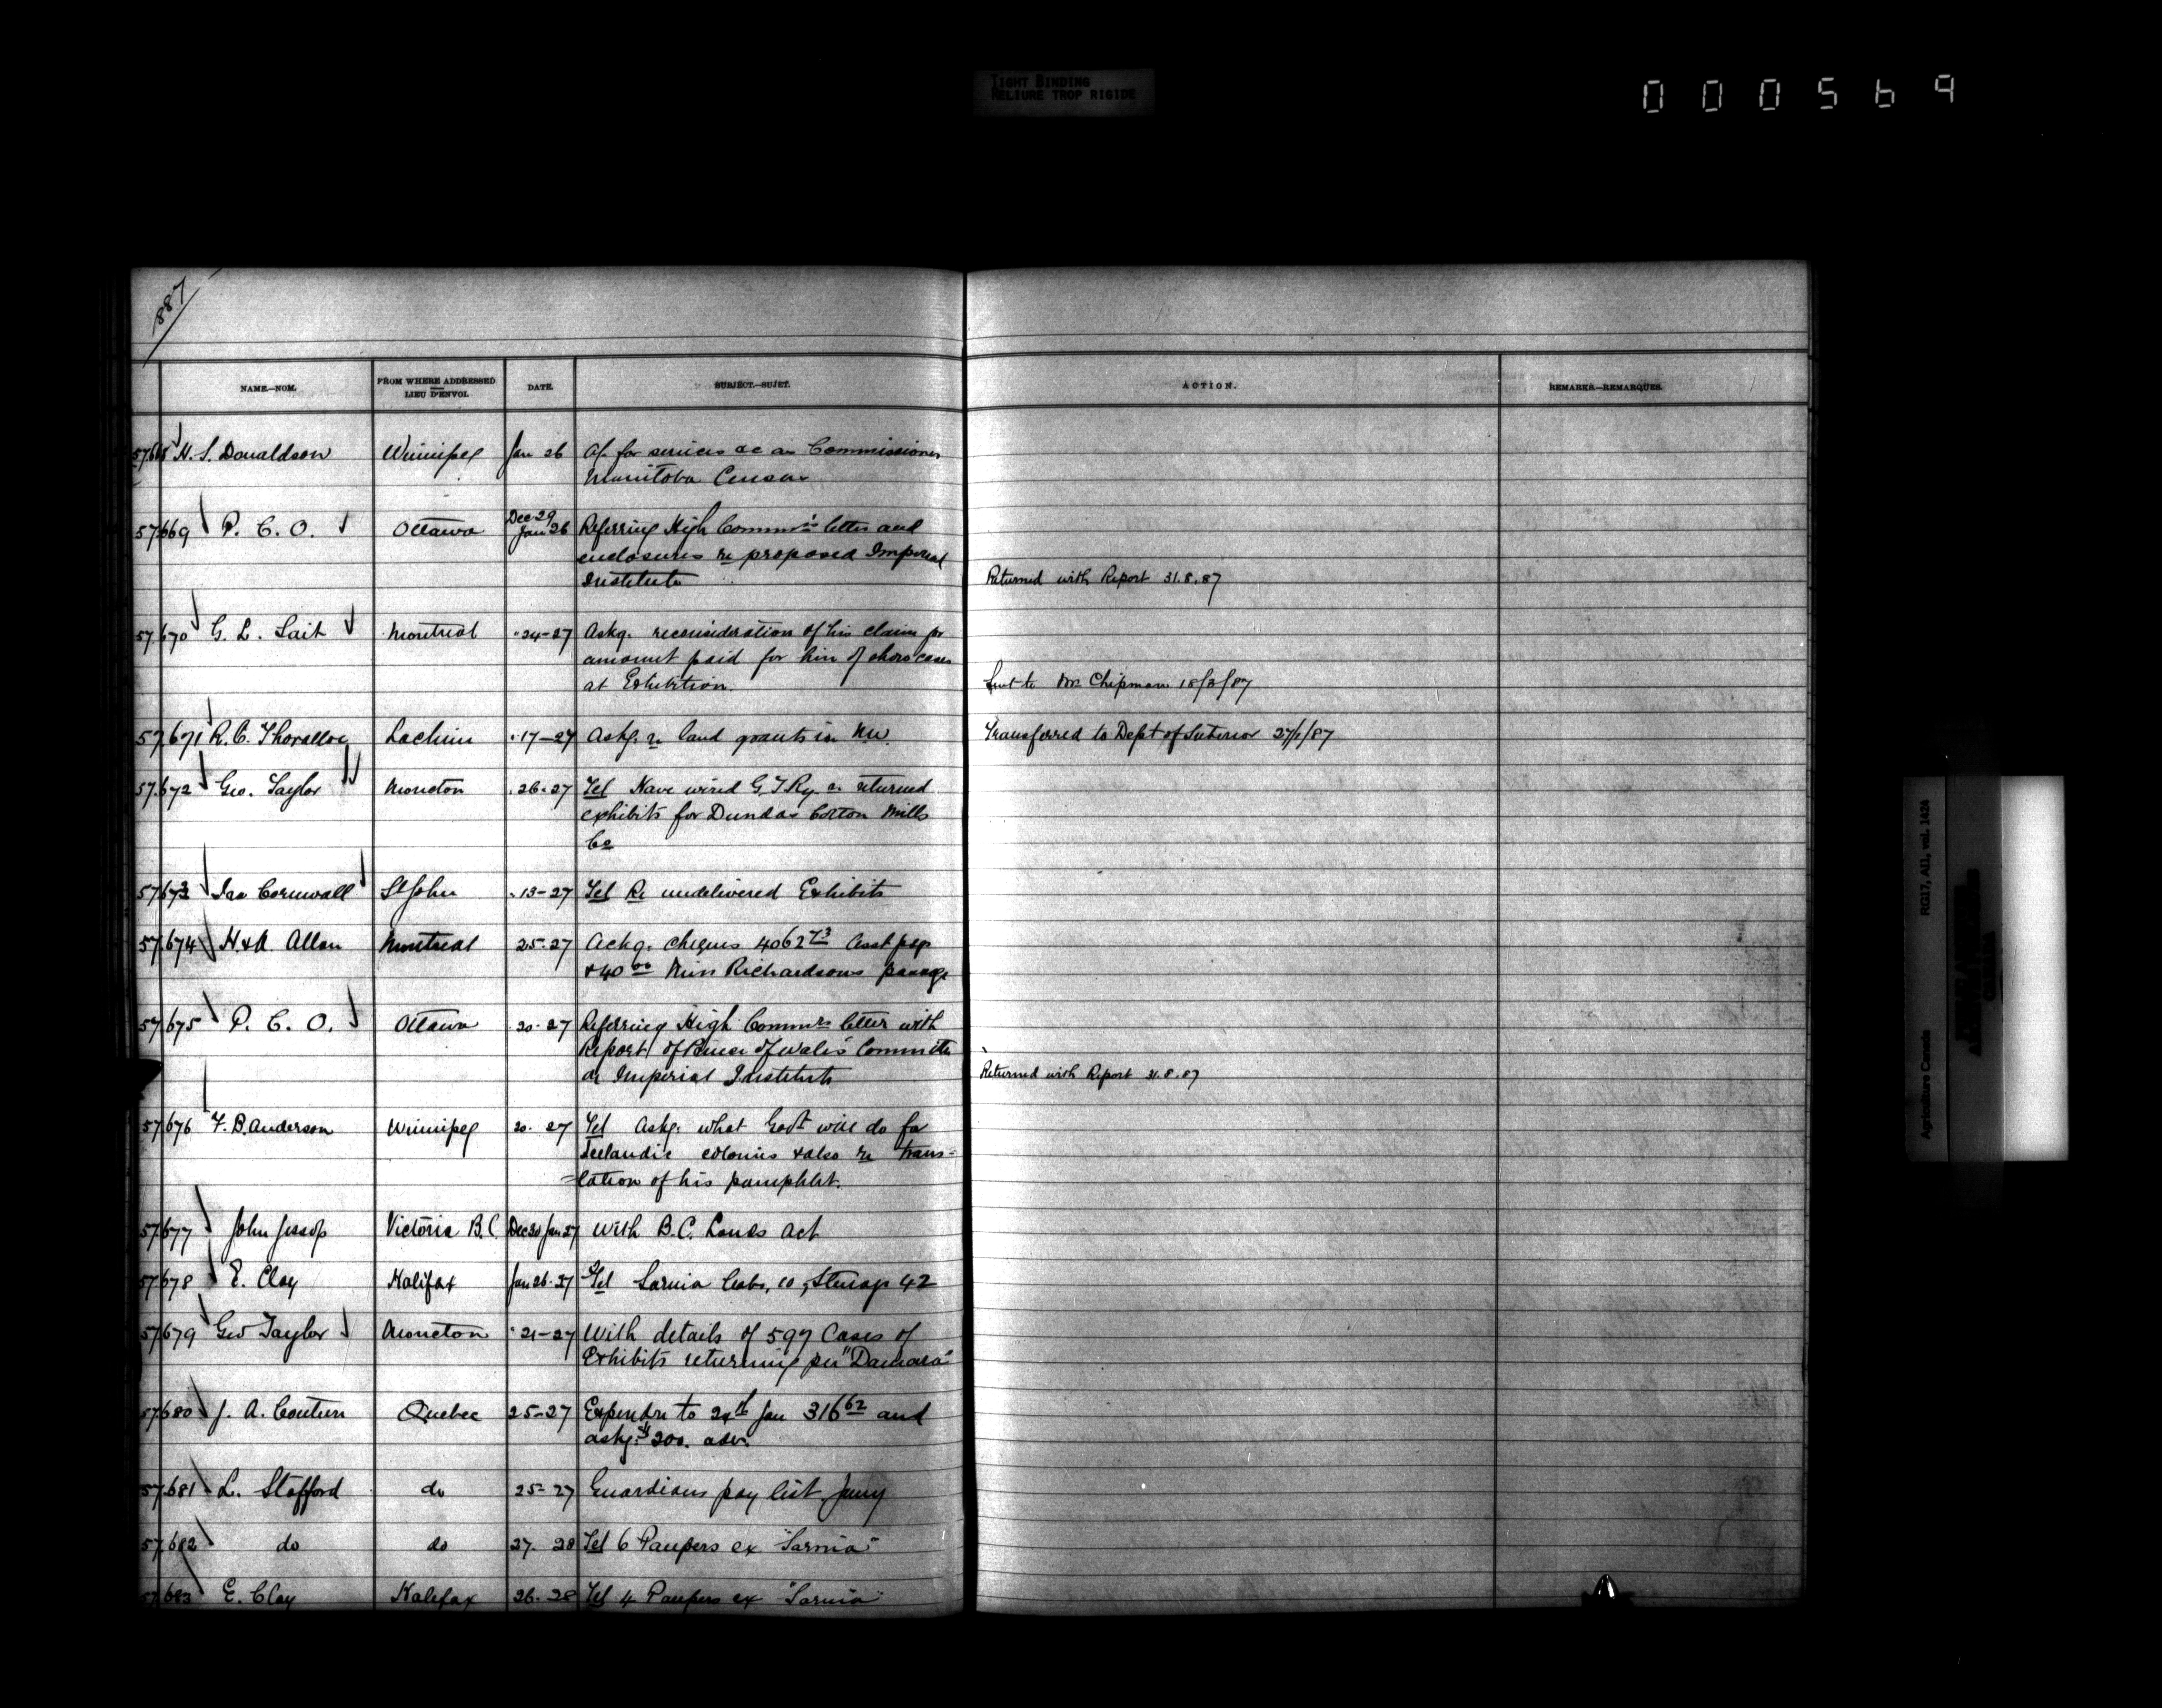 TIGHT BINDING
RELIURE TROP RIGIDE
000569
887
NAME.—NOM. FROM WHERE ADDRESSED LIEU D'ENVOI. DATE. SUBJECT.—SUJET. ACTION. REMARKS.—REMARQUES.
H. S. Donaldson Winnipeg Jan 26 A/. for services as a Commissioner
Manitoba Census
57.669 P. C. O. Ottawa Dec 29 Jan 26 Referring High Commr's letter and
enclosures re proposed Imperial
Institute Returned with Report 31.8.87
57.670 G. L. Lait Montreal " 24-27 Askg. reconsideration of his claim for
amount paid for hire of show cases
at Exhibition. Sent to Mr Chipman 18/3/87
57.671 R. C. Lachine " 17-27 Askg. re land grants in NW. Transferred to Dept of Interior 27/1/87
57.672 Geo. Taylor Moncton " 26-27 Tel Have wired G.T.Ry. re returned
exhibits for Dundas Cotton Mills
Co
57.673 Ira Cornwall St John " 13-27 Tel Re undelivered Exhibits
57.674 H & A. Allan Montreal 25-27 Ackg. cheques 4062 73 Asst psgs
& 40 00 Miss Richardsons passage
57.675 P. C. O. Ottawa 20-27 Referring High Commrs letter with
Report of Prince of Wales' Committee
re Imperial Institute Returned with Report 31.8.87
57.676 F. B. Anderson Winnipeg 20. 27 Tel Askg. what Govt will do for
Icelandic colonies & also re trans=
=lation of his pamphlet.
57.677 John Jessop Victoria B.C. Dec 20 Jan 27 With B.C. Lands Act
57.678 E. Clay Halifax Jan 26-27 Tel Sarnia Cabs, 10, Steerage 42
57.679 Geo Taylor Moncton " 21-27 With details of 597 Cases of
Exhibits returning per "Damara"
57.680 J. A. Couture Quebec 25-27 Expendre to 24th Jan 316 62 and
askg. $200. adv.
57.681 L. Stafford do 25-27 Guardians pay list Jany
57.682 do do 27. 28 Tel 6 Paupers ex "Sarnia"
57.683 E. Clay Halifax 26-28 Tel 4 Paupers ex "Sarnia"
Agriculture Canada RG17, AI1, vol. 1424